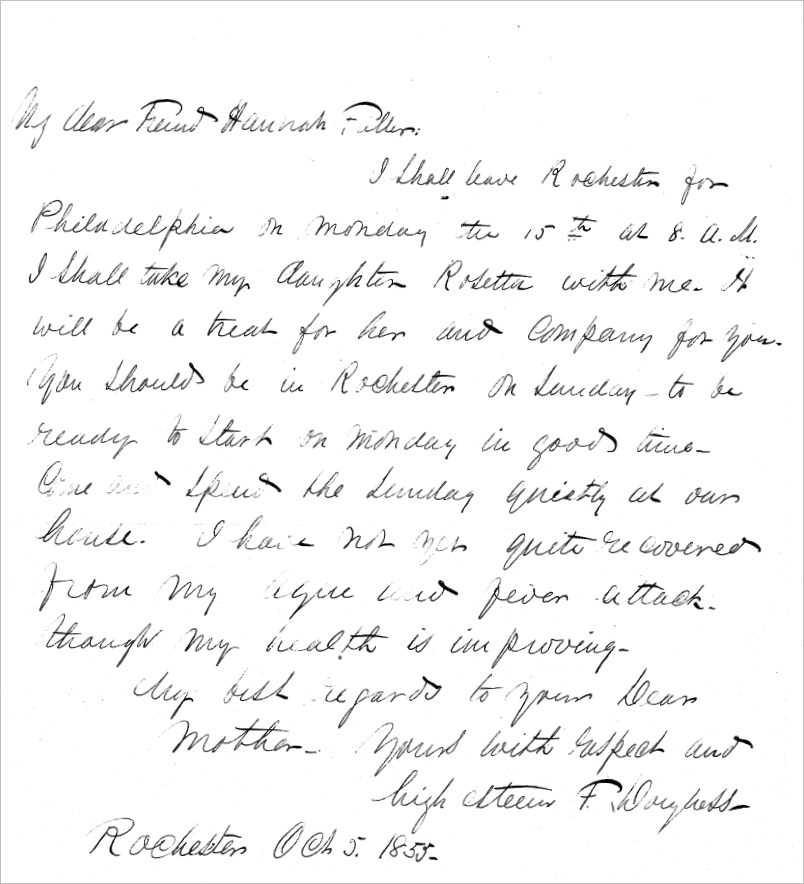 My dear Freind Hannah Fuller:
I shall leave Rochester for
Philadelphia on Monday the 15th at 8. A. M.
I shall take my daughter Rosetta with me. It
will be a treat for her and company for you.
You should be in Rochester on Sunday – to be
ready to start on Monday in good time –
Come and spend the Sunday quietly at our
house. I have not yet quite recovered
from my ague and fever attack.
though my health is improving –
My best regards to your Dear
Mother – Yours with respect and
high esteem F. Douglass –
Rochester Oct 5. 1855 –